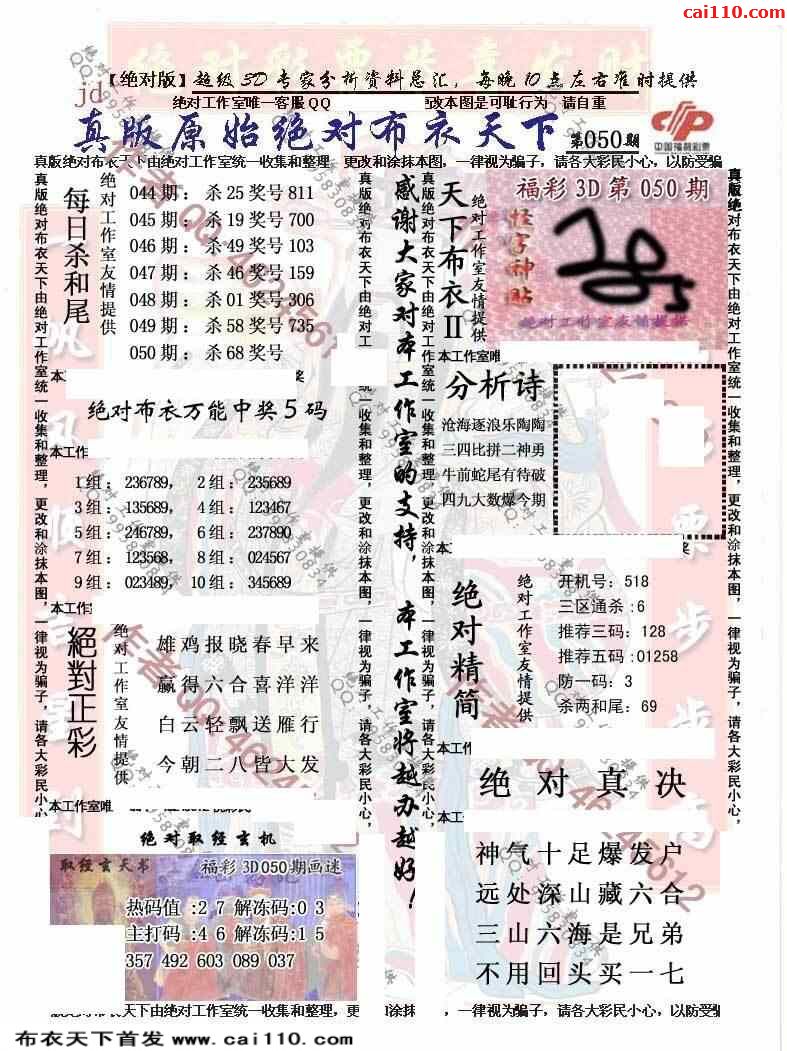 cai110.com
【绝对版】超级3D专家分析资料总汇，每晚10点左右准时提供
jd
绝对工作室唯一客服QQ
改本图是可耻行为 请自重
真版原始绝对布衣天下
第050期
中国福利彩票
真版绝对布衣天下由绝对工作室统一收集和整理，更改和涂抹本图，一律视为骗子，请各大彩民小心，以防受骗
每日杀和尾
绝对工作室友情提供
044期：杀25奖号811
045期：杀19奖号700
046期：杀49奖号103
047期：杀46奖号159
048期：杀01奖号306
049期：杀58奖号735
050期：杀68奖号
绝对布衣万能中奖5码
本工作
1组：236789，2组：235689
3组：135689，4组：123467
5组：246789，6组：237890
7组：123568，8组：024567
9组：023489，10组：345689
本工作
絕對正彩
绝对工作室友情提供
雄鸡报晓春早来
赢得六合喜洋洋
白云轻飘送雁行
今朝二八皆大发
本工作室唯
绝对取经玄机
取经玄天书
福彩3D050期画迷
热码值:27解冻码:03
主打码:46解冻码:15
357 492 603 089 037
感谢大家对本工作室的支持，本工作室将越办越好！
天下布衣II
绝对工作室友情提供
福彩3D第050期
怪字神贴
绝对工作室友情提供
本工作室唯
分析诗
沧海逐浪乐陶陶
三四比拼二神勇
牛前蛇尾有待破
四九大数爆今期
绝对精简
绝对工作室友情提供
开机号：518
三区通杀:6
推荐三码：128
推荐五码:01258
防一码：3
杀两和尾：69
本工作
绝对真决
神气十足爆发户
远处深山藏六合
三山六海是兄弟
不用回头买一七
布衣天下由绝对工作室统一收集和整理，更
，一律视为骗子，请各大彩民小心，以防受骗
布衣天下首发 www.cai110.com